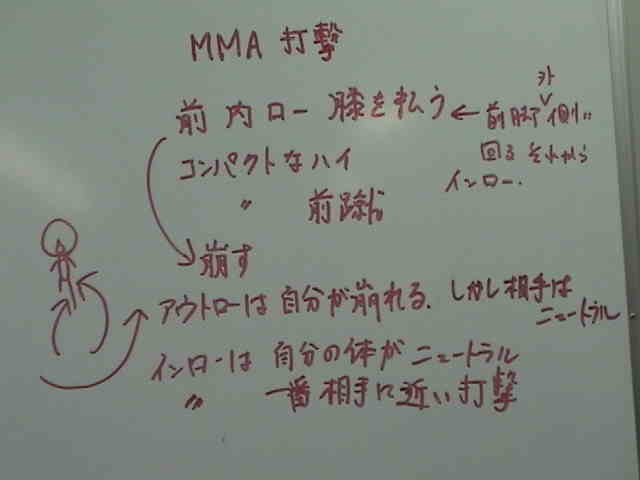 MMA 打撃
前内ロー 膝を払う ← 前脚外側に
回る それから
インロー.
コンパクトなハイ
〃 前蹴り
崩す
アウトローは 自分が崩れる. しかし相手は
ニュートラル
インローは 自分の体が ニュートラル
〃 一番相手に近い打撃